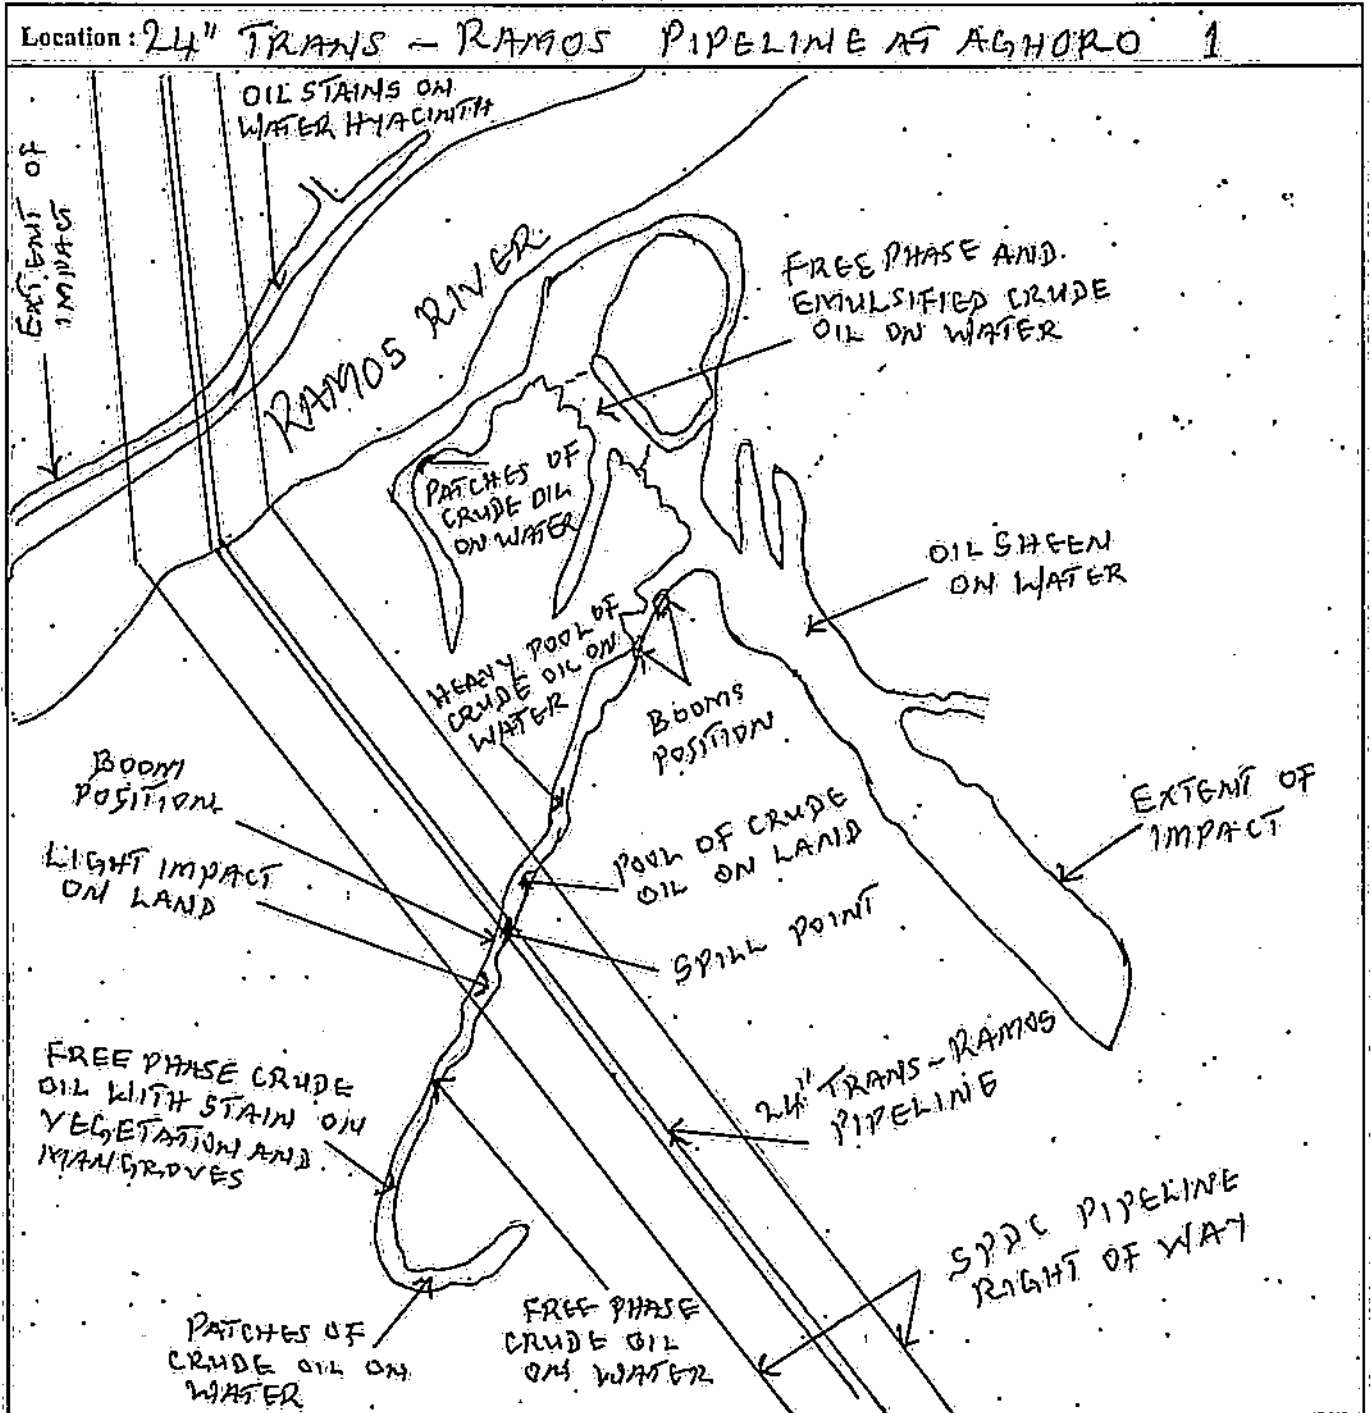 Location: 24" TRANS - RAMOS PIPELINE AT AGHORO 1
OIL STAINS ON
WATER HYACINTH
EXTENT OF
IMPACT
RAMOS RIVER
FREE PHASE AND
EMULSIFIED CRUDE
OIL ON WATER
PATCHES OF
CRUDE OIL
ON WATER
OIL SHEEN
ON WATER
HEAVY POOL OF
CRUDE OIL ON
WATER
BOOMS
POSITION
BOOM
POSITION
EXTENT OF
IMPACT
LIGHT IMPACT
ON LAND
POOL OF CRUDE
OIL ON LAND
SPILL POINT
24" TRANS-RAMOS
PIPELINE
FREE PHASE CRUDE
OIL WITH STAIN ON
VEGETATION AND
MANGROVES
SPDC PIPELINE
RIGHT OF WAY
PATCHES OF
CRUDE OIL ON
WATER
FREE PHASE
CRUDE OIL
ON WATER